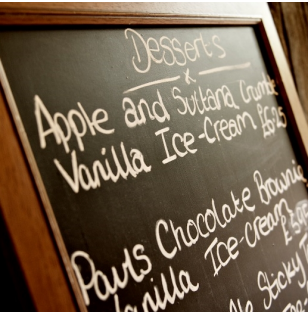 Desserts
x
Apple and Sultana Crumble
Vanilla Ice-Cream £6.25
Pauls Chocolate Brownie
Vanilla Ice-Cream
Sticky